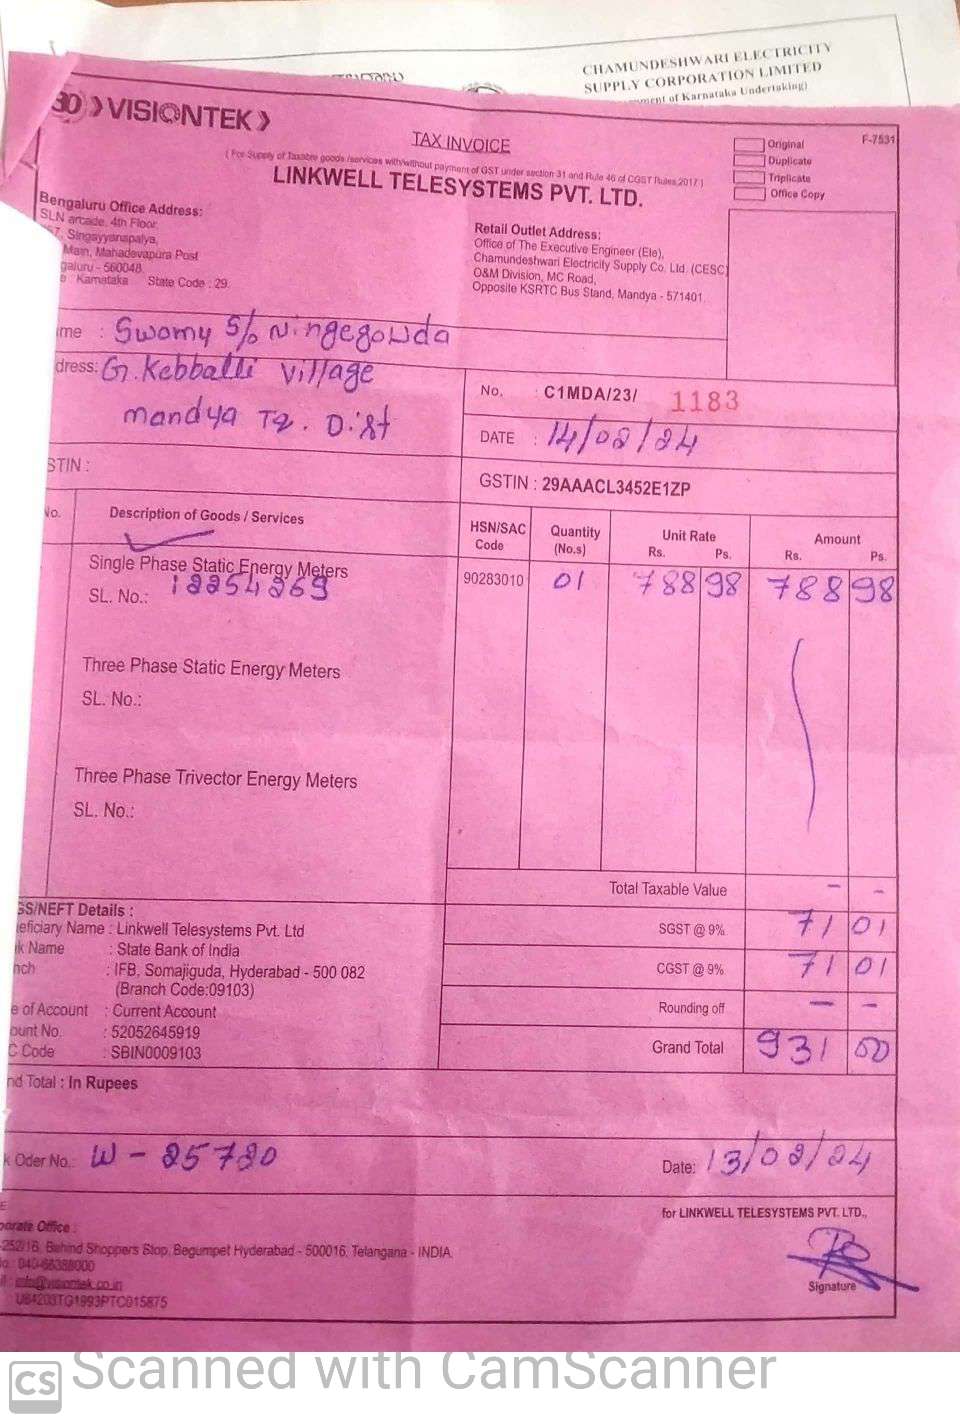 CHAMUNDESHWARI ELECTRICITY
SUPPLY CORPORATION LIMITED
of Karnataka Undertaking)
30 VISIONTEK
TAX INVOICE
( For Supply of Taxable goods /services with/without payment of GST under section 31 and Rule 46 of CGST Rules,2017 )
LINKWELL TELESYSTEMS PVT. LTD.
F-7531
Original
Duplicate
Triplicate
Office Copy
Bengaluru Office Address:
SLN arcade, 4th Floor,
Singayyanapalya,
Main, Mahadevapura Post
galuru - 560048.
Karnataka State Code : 29.
Retail Outlet Address:
Office of The Executive Engineer (Ele),
Chamundeshwari Electricity Supply Co. Ltd. (CESC)
O&M Division, MC Road,
Opposite KSRTC Bus Stand, Mandya - 571401.
me : Swamy S/o Ningegowda
dress: G. Kebballi Village
mandya Tq. Dist
No. : C1MDA/23/ 1183
DATE : 14/02/24
STIN :
GSTIN : 29AAACL3452E1ZP
No. Description of Goods / Services HSN/SAC Code Quantity (No.s) Unit Rate Rs. Ps. Amount Rs. Ps.
Single Phase Static Energy Meters 90283010 01 788 98 788 98
SL. No.: 12254269
Three Phase Static Energy Meters
SL. No.:
Three Phase Trivector Energy Meters
SL. No.:
Total Taxable Value - -
GS/NEFT Details :
eficiary Name : Linkwell Telesystems Pvt. Ltd
SGST @ 9% 71 01
k Name : State Bank of India
nch : IFB, Somajiguda, Hyderabad - 500 082
(Branch Code:09103)
CGST @ 9% 71 01
e of Account : Current Account
Rounding off - -
ount No. : 52052645919
C Code : SBIN0009103
Grand Total 931 00
nd Total : In Rupees
k Oder No.: W - 25720
Date: 13/02/24
for LINKWELL TELESYSTEMS PVT. LTD.,
porate Office :
-252/16, Behind Shoppers Stop, Begumpet Hyderabad - 500016, Telangana - INDIA
040-66388000
info@visiontek.co.in
U64203TG1993PTC015875
Signature
CS Scanned with CamScanner